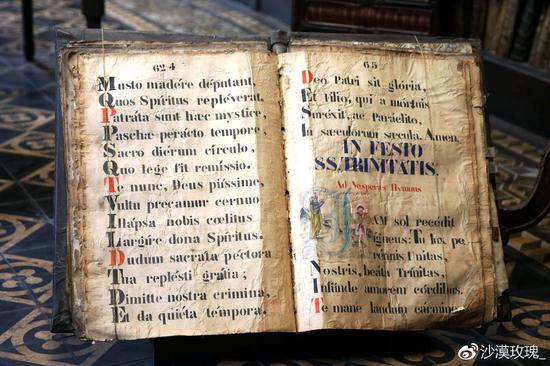 624
Musto madére députant,
Quos Spíritus repléverat.
Patráta sunt hæc mystice,
Paschæ perácto tempore,
Sacro diérum círculo,
Quo lege fit remíssio.
Te nunc, Deus piíssime,
Vultu precamur cernuo
Illápsa nobis cœlitus
Largíre dona Spíritus.
Dudum sacráta péctora
Tua replésti grátia;
Dimítte nostra crimina,
Et da quiéta témpora,
65
Deo Patri sit glória,
Et Filio, qui a mórtuis
Surréxit, ac Paráclito,
In sæculorum sæcula. Amen.
IN FESTO
SS. TRINITATIS.
Ad Vesperas Hymnus
JAM sol recédit
igneus: Tu lux pe
rennis Unitas,
Nostris, beáta Trínitas,
Infúnde amorem córdibus.
Te mane laudum cármine
沙漠玫瑰_